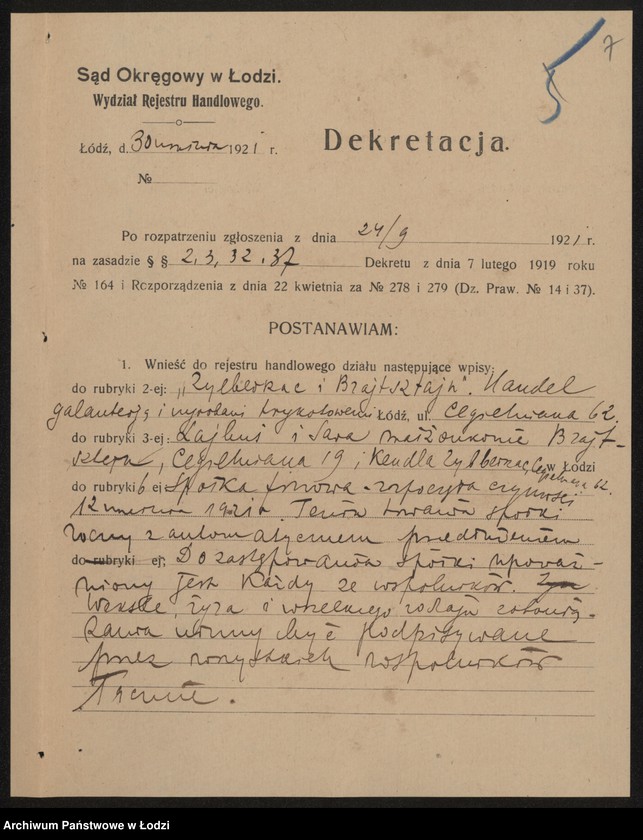 7
5
Sąd Okręgowy w Łodzi.
Wydział Rejestru Handlowego.
Dekretacja.
Łódź, d. 30 września 1921 r.
№
Po rozpatrzeniu zgłoszenia z dnia 24/9 1921 r.
na zasadzie § § 2, 3, 32 i 37 Dekretu z dnia 7 lutego 1919 roku
№ 164 i Rozporządzenia z dnia 22 kwietnia za № 278 i 279 (Dz. Praw. № 14 i 37).
POSTANAWIAM:
1. Wnieść do rejestru handlowego działu następujące wpisy:
do rubryki 2-ej: „Zylberszac i Brajtsztajn". Handel
galanterją i wyrobami trykotowemi Łódź, ul. Cegielniana 62.
do rubryki 3-ej: Lajbuś i Sara małżonkowie Brajt-
sztajn, Cegielniana 19, i Kendla Zylberszac, Cegielniana 62. w Łodzi
do rubryki 6 ej: Spółka firmowa - rozpoczęła czynności
12 września 1921 r. Termin trwania spółki
roczny z automatycznem przedłużeniem
do rubryki ej: Do zastępowania spółki upoważ-
niony jest każdy ze wspólników.
Weksle, żyra i wszelkiego rodzaju zobowią-
zania winny być podpisywane
przez wszystkich wspólników
łącznie.
Archiwum Państwowe w Łodzi